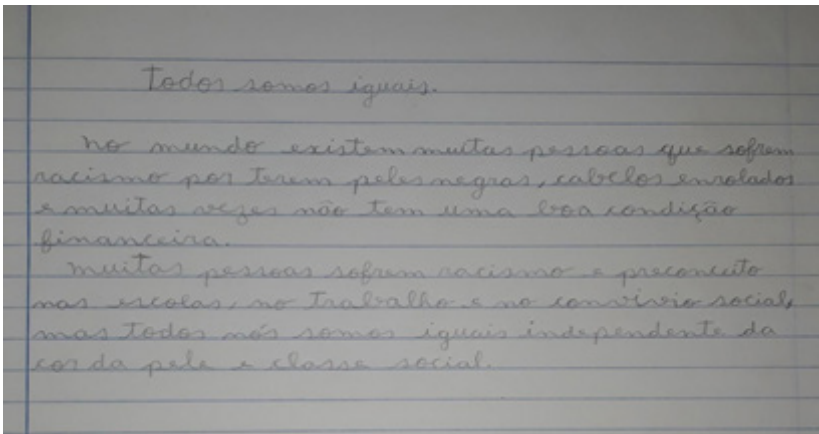 Todos somos iguais.
no mundo existem muitas pessoas que sofrem
racismo por terem peles negras, cabelos enrolados
e muitas vezes não tem uma boa condição
financeira.
muitas pessoas sofrem racismo e preconceito
nas escolas, no trabalho e no convívio social,
mas todos nós somos iguais independente da
cor da pele e classe social.